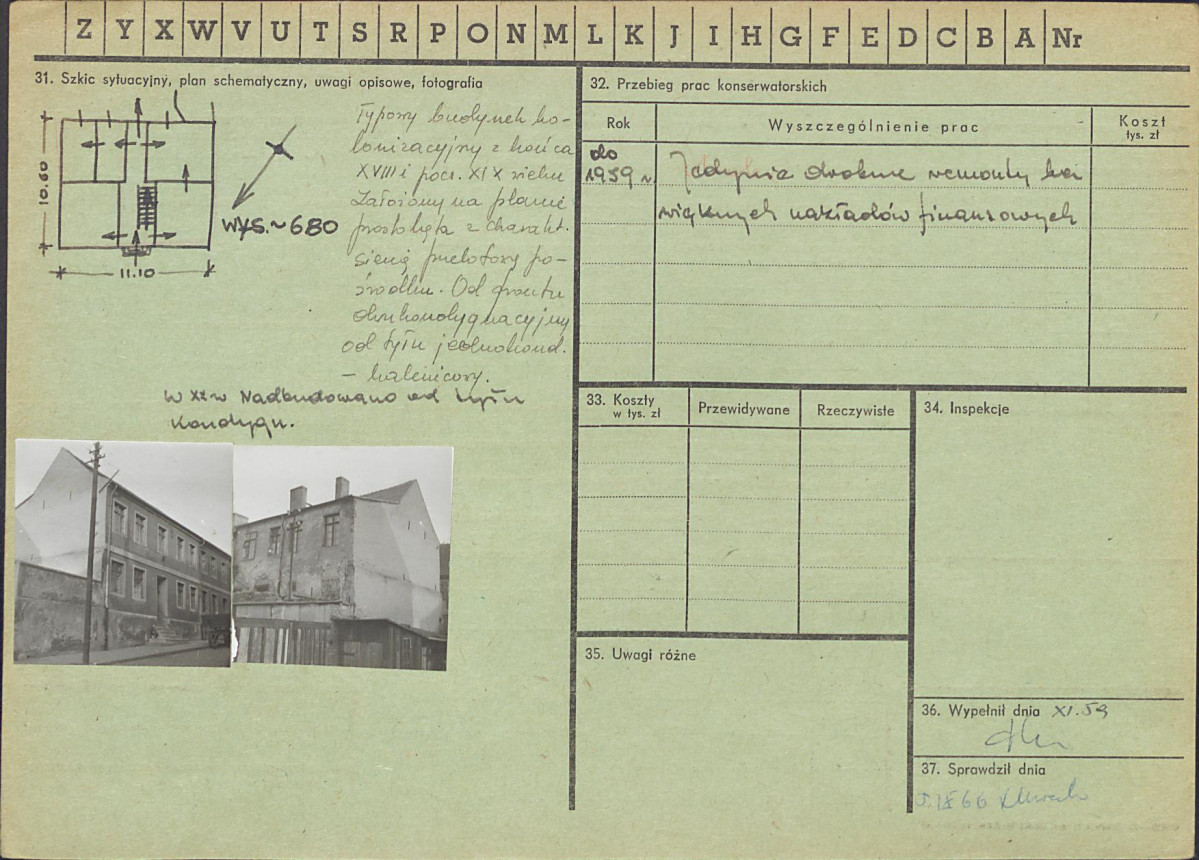 Z Y X W V U T S R P O N M L K J I H G F E D C B A Nr
31. Szkic sytuacyjny, plan schematyczny, uwagi opisowe, fotografia
10.60
11.10
WYS. ~ 680
Typowy budynek ko-
lonizacyjny z końca
XVIII i pocz. XIX wieku
Założony na planie
prostokąta z charakt.
sienią przelotową po-
środku. Od frontu
dwukondygnacyjny
od tyłu jednokond.
W XX w Nadbudowano od tyłu
Kondygn.
32. Przebieg prac konserwatorskich
Rok
Wyszczególnienie prac
Koszt
tys. zł
do
1959 r.
Jedynie drobne remonty bez
większych nakładów finansowych
33. Koszty
w tys. zł
Przewidywane
Rzeczywiste
34. Inspekcje
35. Uwagi różne
36. Wypełnił dnia XI.59
37. Sprawdził dnia